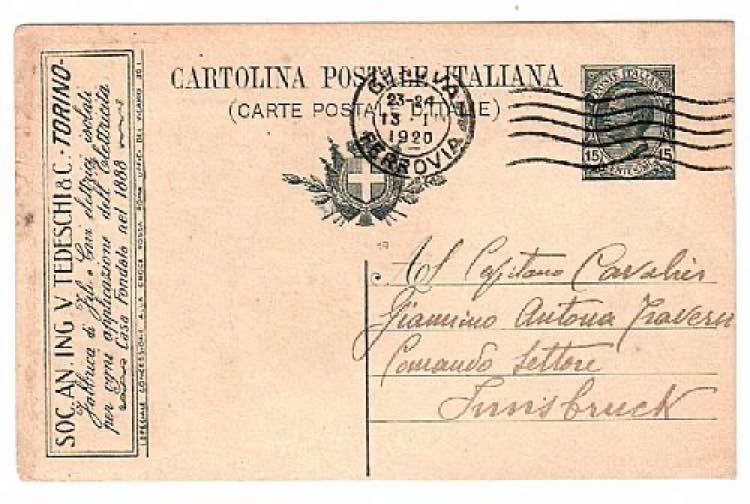 CARTOLINA POSTALE ITALIANA
(CARTE POSTALE D'ITALIE)
23-24
13 · 1
1920
FERROVIA
POSTE ITALIANE
15 15
CENTESIMI
SOC. AN. ING. V. TEDESCHI & C. · TORINO-
Fabbrica di Fili e Cavi elettrici isolati
per ogni applicazione dell'Elettricità
Casa Fondata nel 1888
SPECIALE CONCESSIONE ALLA CROCE ROSSA ROMA UFFICI DEL VICARIO 30
Al Capitano Cavalier
Giannino Antona Traversi
Comando Settore
Innsbruck